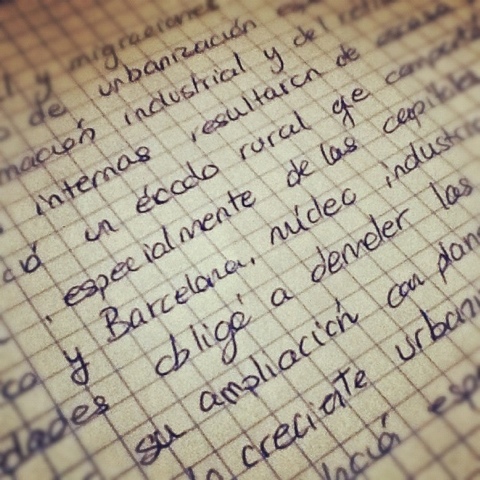 l y migraciones
o de urbanización esp
mación industrial y del
internas resultaron de escasa
ció un éxodo rural qe
, especialmente de las capitales
y Barcelona, núcleo industria
obligó a demoler las
dades su ampliación con plan
la creciente urbani
ació esp